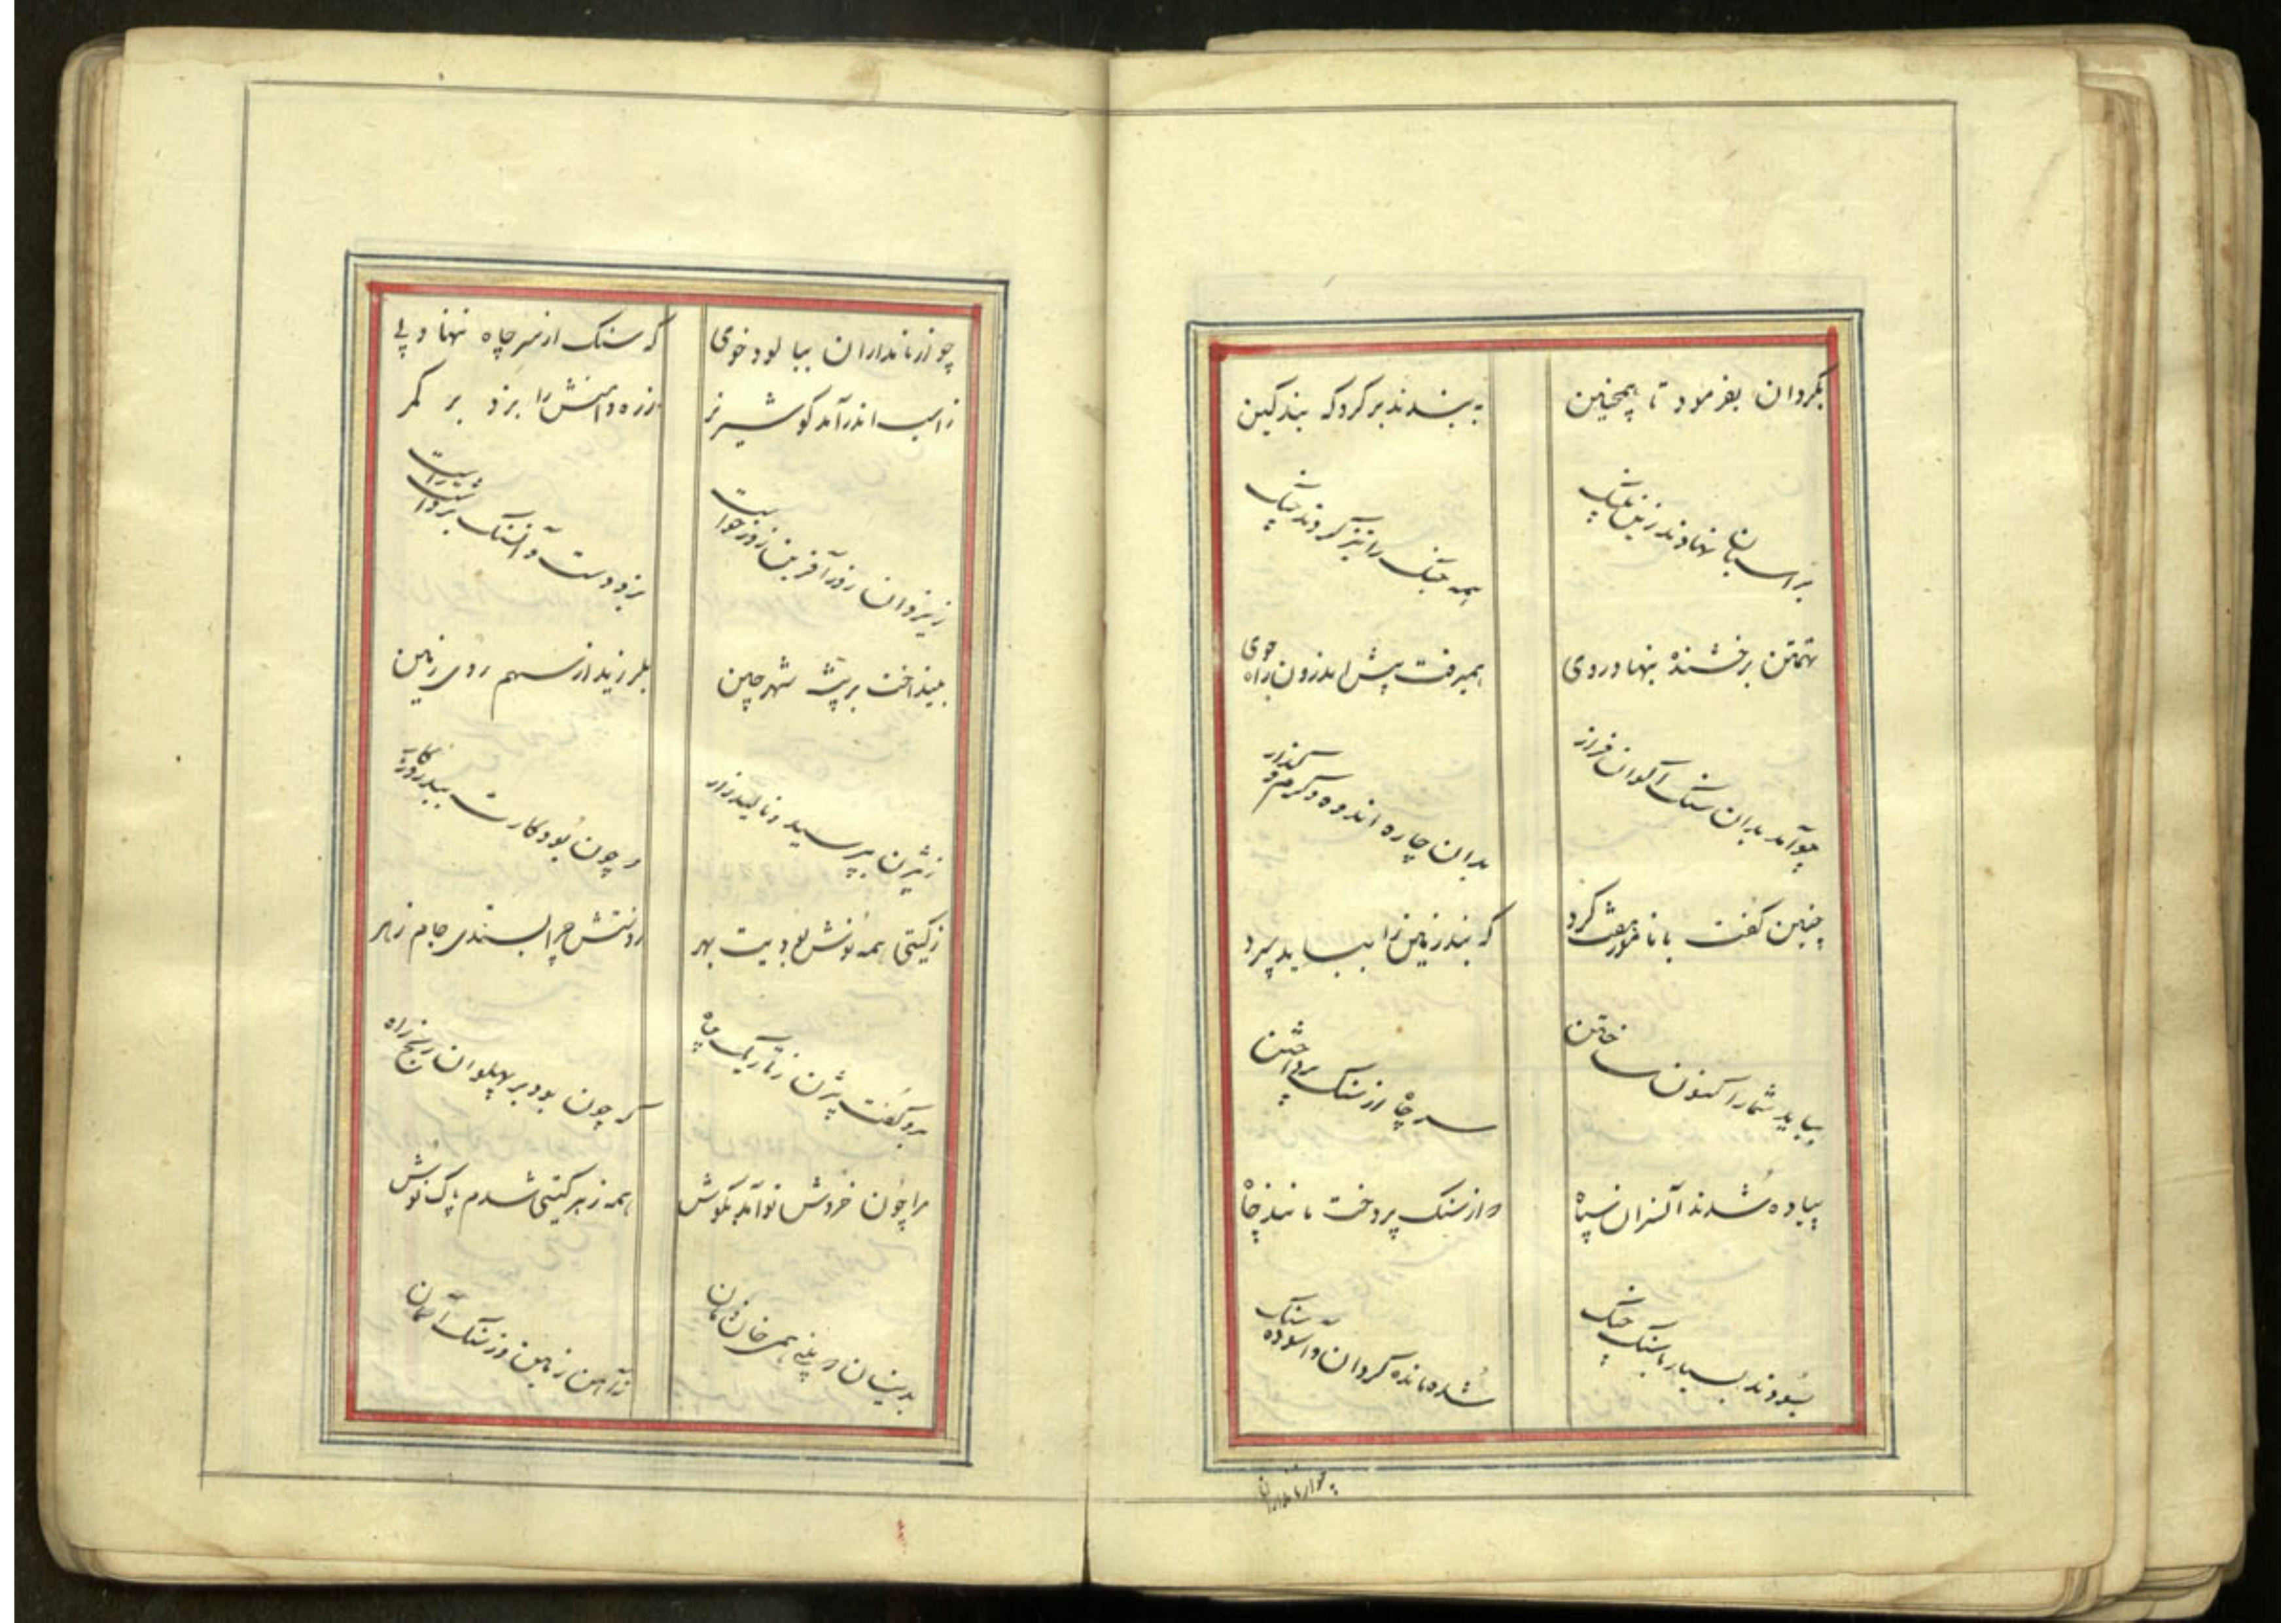 بگردان بفرمود تا همچنین
به بستند بر گردکه بند کین
بر اسبان نهادند زین پلنگ
همه جنگ را تیز کردند چنگ
تهمتن برخشنده بنهاد روی
همیرفت پیش اندرون راه جوی
چو آمد بدان سنک اکوان فراز
بدان چاره اندوه و گرم و گداز
چنین گفت با نامور هفت گرد
که بند زمین را بباید سپرد
بباید شما را کنون ساختن
سر چاه از سنک پرداختن
پیاده شدند آن سران سپاه
از سنک پردخت مانند چاه
بسودند بسیار با سنک چنک
شده مانده گردان و آسوده سنک
چو از نامداران
چو از نامداران ببالود خوی
که سنک از سر چاه ننهاد پی
ز اسب اندر آمد گو شیر نر
زره دامنش را بزد بر کمر
ز یزدان زور آفرین زور خواست
بزد دست و آن سنک برداشت راست
بینداخت بر بیشه شهر چین
بلرزید از سهم روی زمین
ز بیژن بپرسید و نالید زار
که چون بود کارت ببد روزگار
ز گیتی همه نوش بودیت بهر
ز دستش چرا بستدی جام زهر
بدو گفت بیژن ز تاریک چاه
که چون بود بر پهلوان رنج راه
مرا چون خروش تو آمد بگوش
همه زهر گیتی شدم پاک نوش
بدینسان که بینی همی خان و مان
ز آهن زمین و ز سنک آسمان